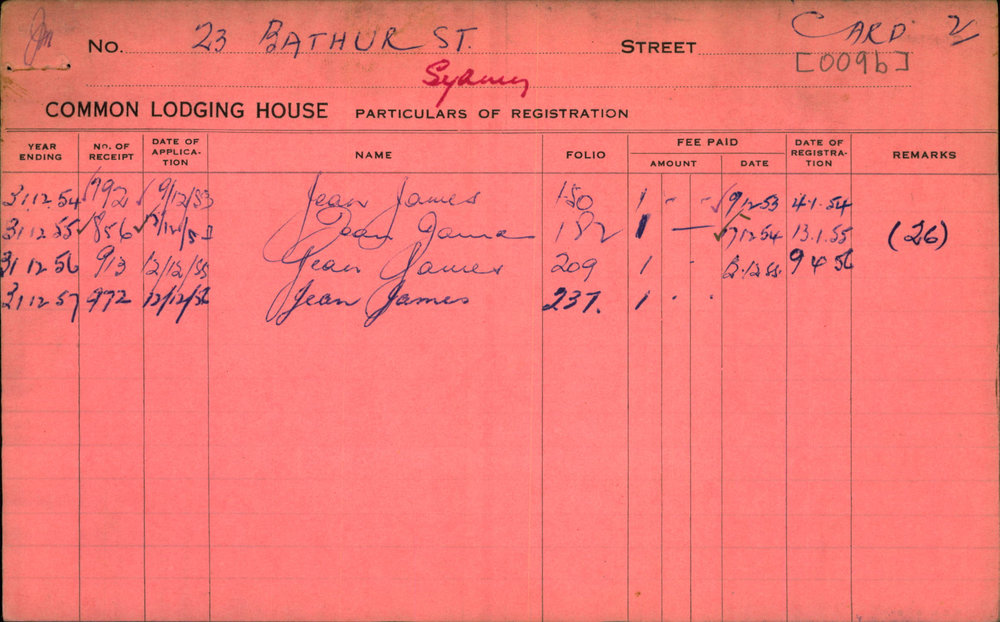 No. 23 BATHURST. STREET CARD 2
[009b]
Sydney
COMMON LODGING HOUSE PARTICULARS OF REGISTRATION
YEAR ENDING No. OF RECEIPT DATE OF APPLICA-TION NAME FOLIO FEE PAID AMOUNT DATE DATE OF REGISTRA-TION REMARKS
31.12.54 792 9/12/53 Jean James 150 1 - - 9/12.53 4.1.54
31.12.55 856 Jean James 182 1 — 7.12.54 13.1.55 (26)
31.12.56 913 12/12/55 Jean James 209 1 - 12.12.55. 9 4 56
31.12.57 972 12/12/56 Jean James 237. 1 . .